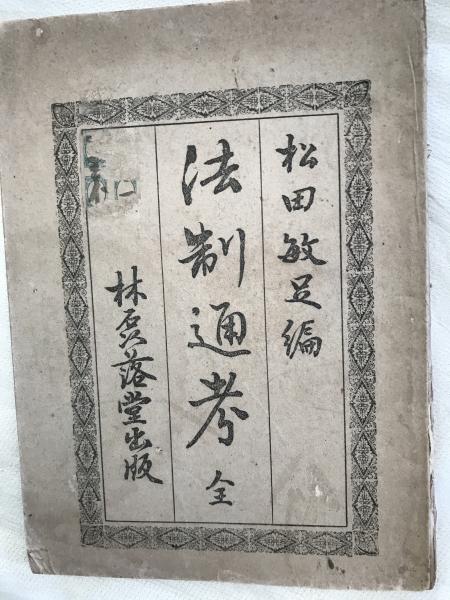 松田敏足編
法制通考 全
林磊落堂出版